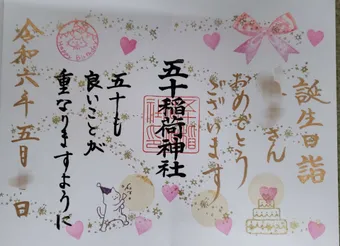 誕生日詣
さん
おめでとう
ございます
五十稲荷神社
五十も
良いことが
重なりますように
令和六年五月 日